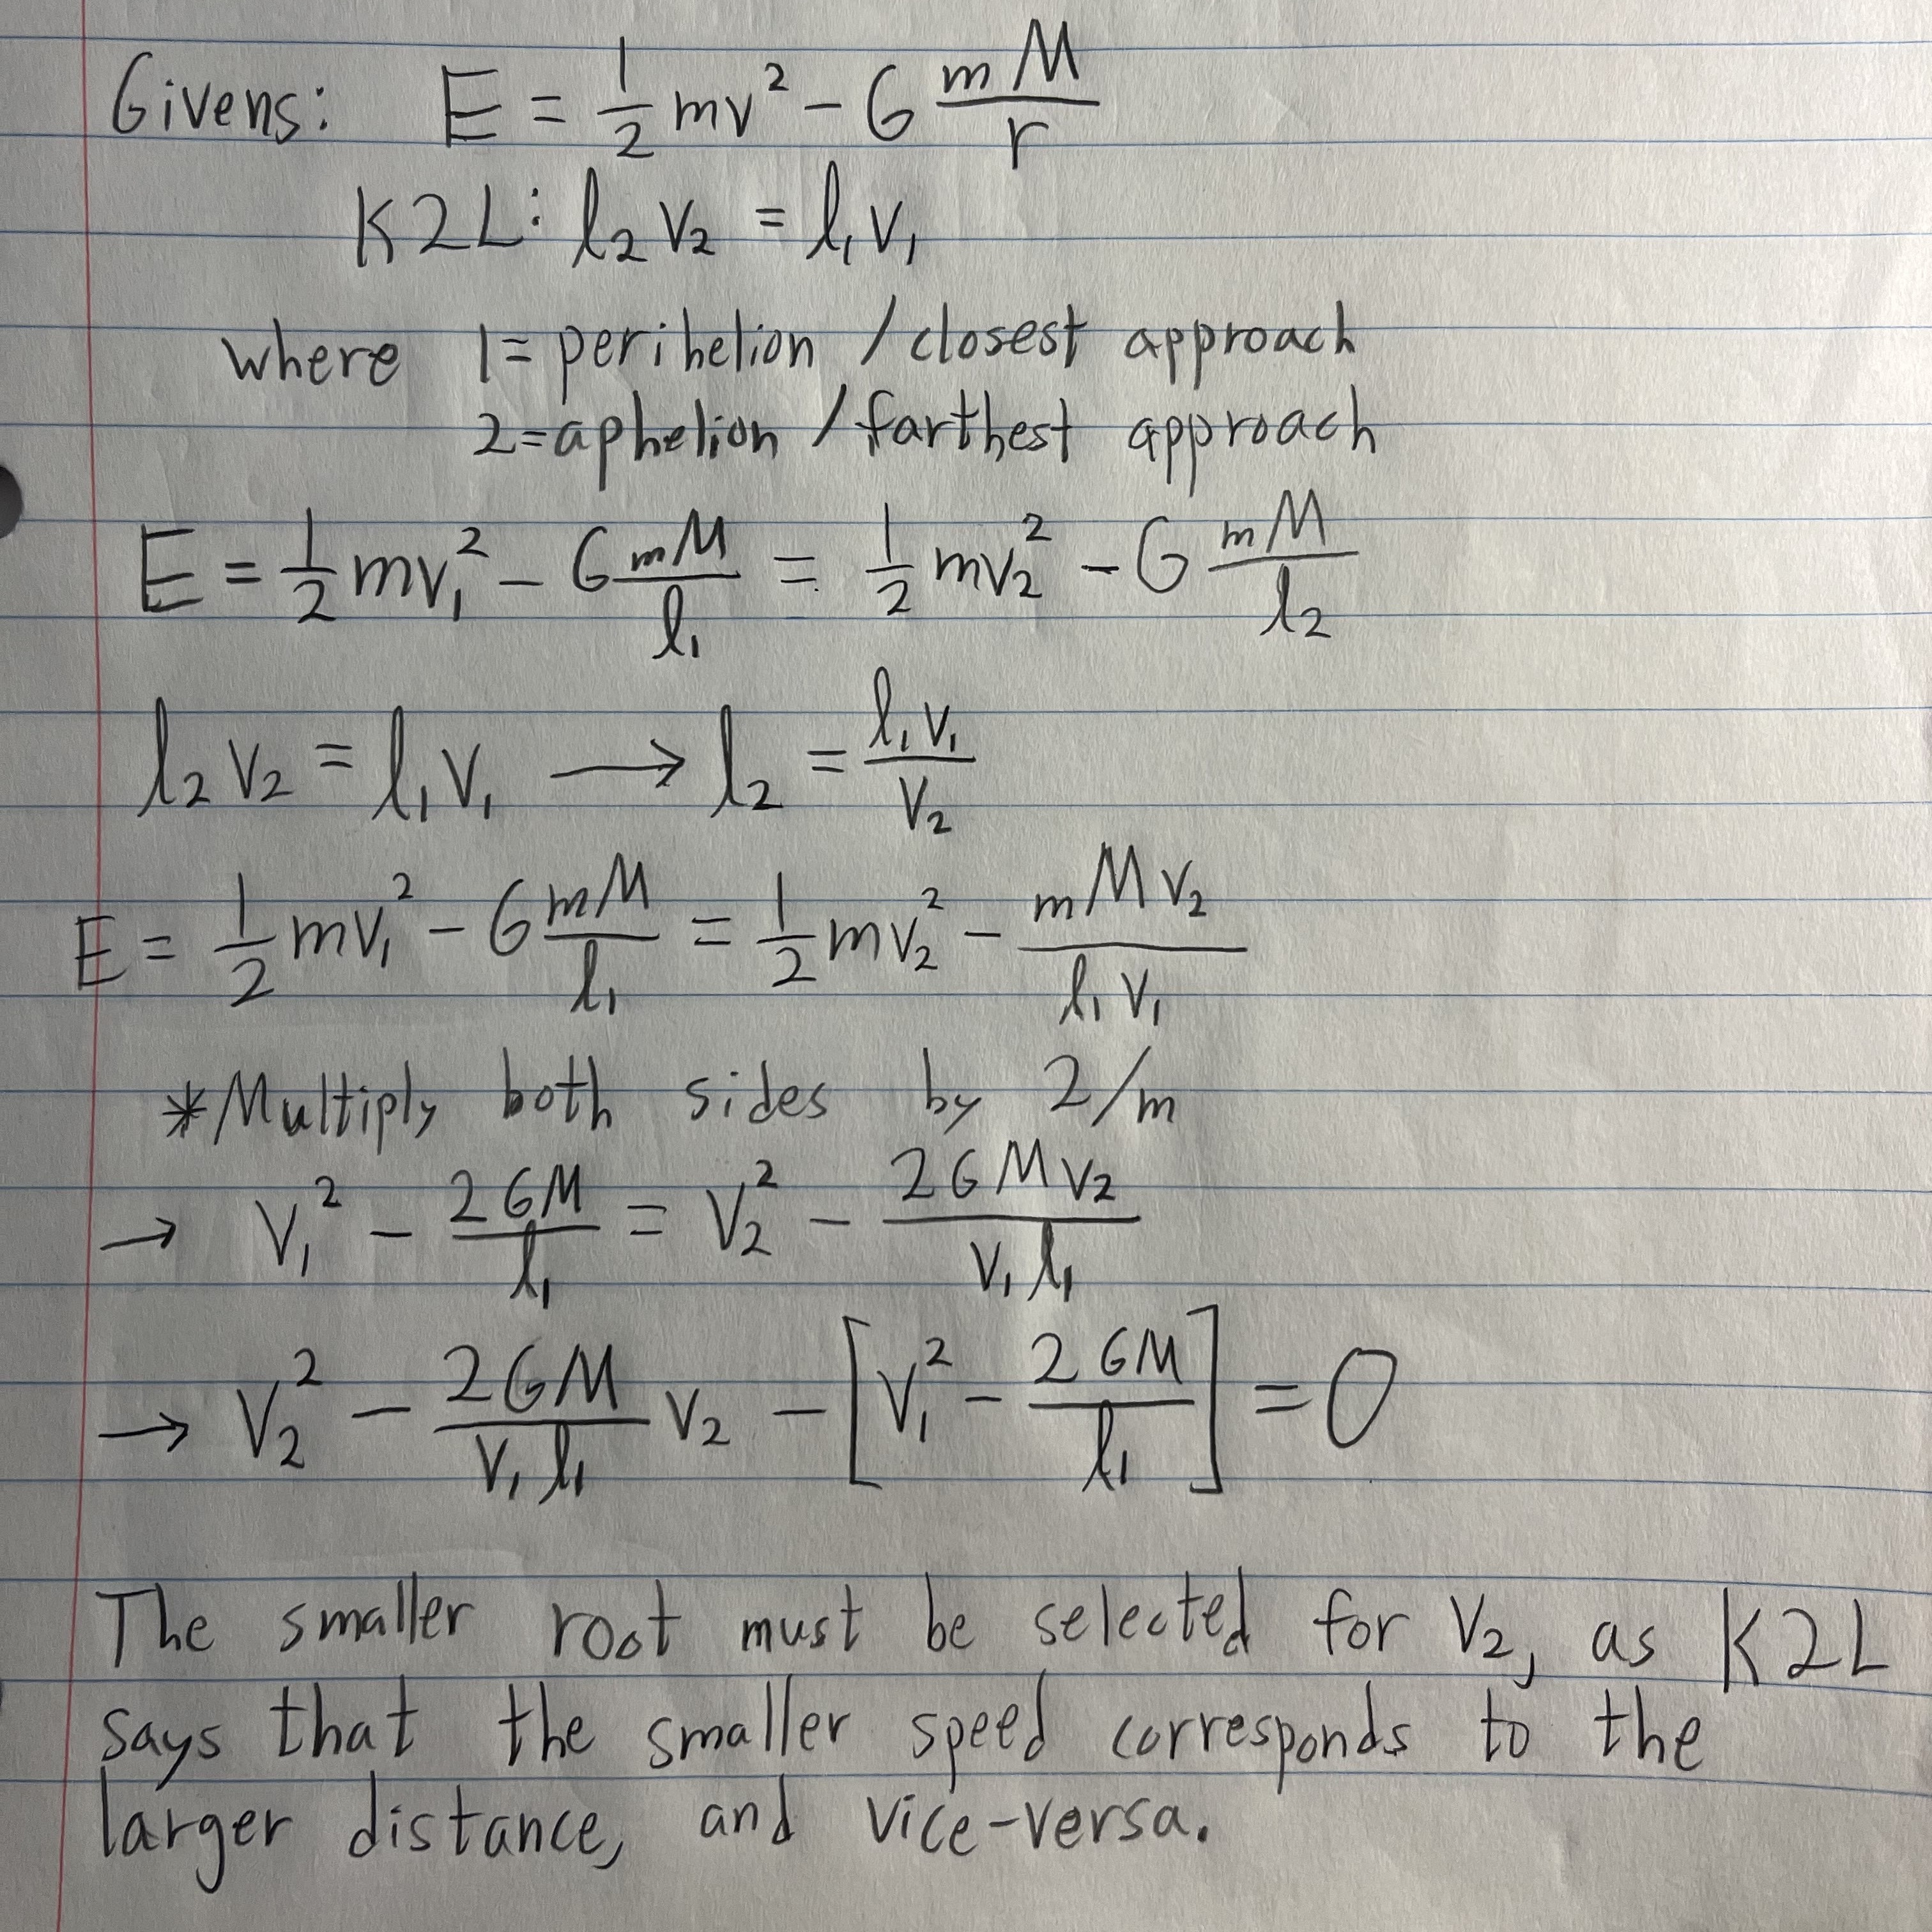 Givens: E = 1/2 mv² - G mM/r
K2L: l₂ v₂ = l₁ v₁
where 1 = perihelion / closest approach
2 = aphelion / farthest approach
E = 1/2 mv₁² - G mM/l₁ = 1/2 mv₂² - G mM/l₂
l₂ v₂ = l₁ v₁ → l₂ = l₁ v₁/v₂
E = 1/2 mv₁² - G mM/l₁ = 1/2 mv₂² - mMv₂/(l₁ v₁)
*Multiply both sides by 2/m
→ v₁² - 2GM/l₁ = v₂² - 2GMv₂/(v₁ l₁)
→ v₂² - 2GM/(v₁ l₁) v₂ - [v₁² - 2GM/l₁] = 0
The smaller root must be selected for v₂, as K2L
says that the smaller speed corresponds to the
larger distance, and vice-versa.